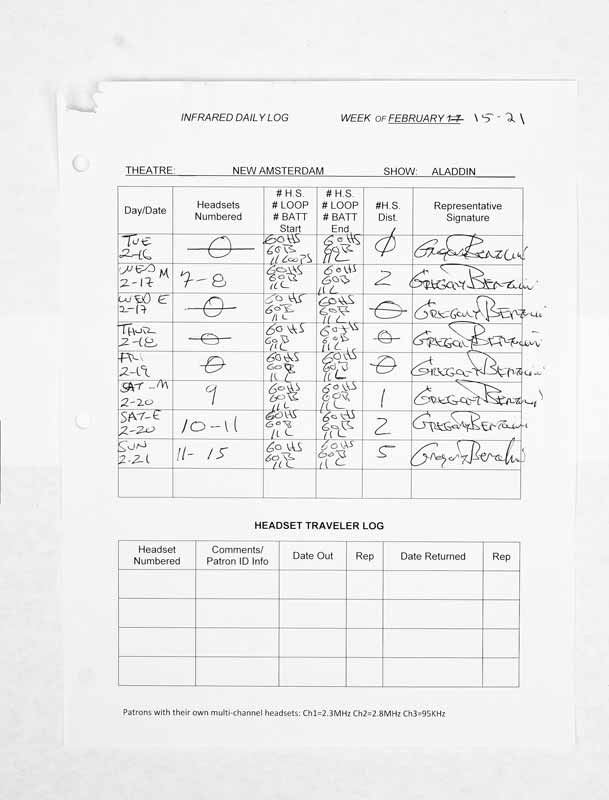 INFRARED DAILY LOG WEEK OF FEBRUARY 17 15-21
THEATRE: NEW AMSTERDAM SHOW: ALADDIN
Day/Date Headsets Numbered # H.S. # LOOP # BATT Start # H.S. # LOOP # BATT End #H.S. Dist. Representative Signature
TUE 2-16 0 60HS 60B 11LOOPS 60HS 60B 11L 0 Gregory Benzuli
WED M 2-17 7-8 60HS 60B 11L 60HS 60B 11L 2 GREGORY BENZULI
WED E 2-17 0 60HS 60B 11L 60HS 60B 11L 0 GREGORY BENZULI
THUR 2-18 0 60HS 60B 11L 60HS 60B 11L 0 GREGORY BENZULI
FRI 2-19 0 60HS 60B 11L 60HS 60B 11L 0 GREGORY BENZULI
SAT-M 2-20 9 60HS 60B 11L 60HS 60B 11L 1 GREGORY BENZULI
SAT-E 2-20 10-11 60HS 60B 11L 60HS 60B 11L 2 GREGORY BENZULI
SUN 2-21 11-15 60HS 60B 11L 60HS 60B 11L 5 Gregory
HEADSET TRAVELER LOG
Headset Numbered Comments/ Patron ID Info Date Out Rep Date Returned Rep
Patrons with their own multi-channel headsets: Ch1=2.3MHz Ch2=2.8MHz Ch3=95KHz